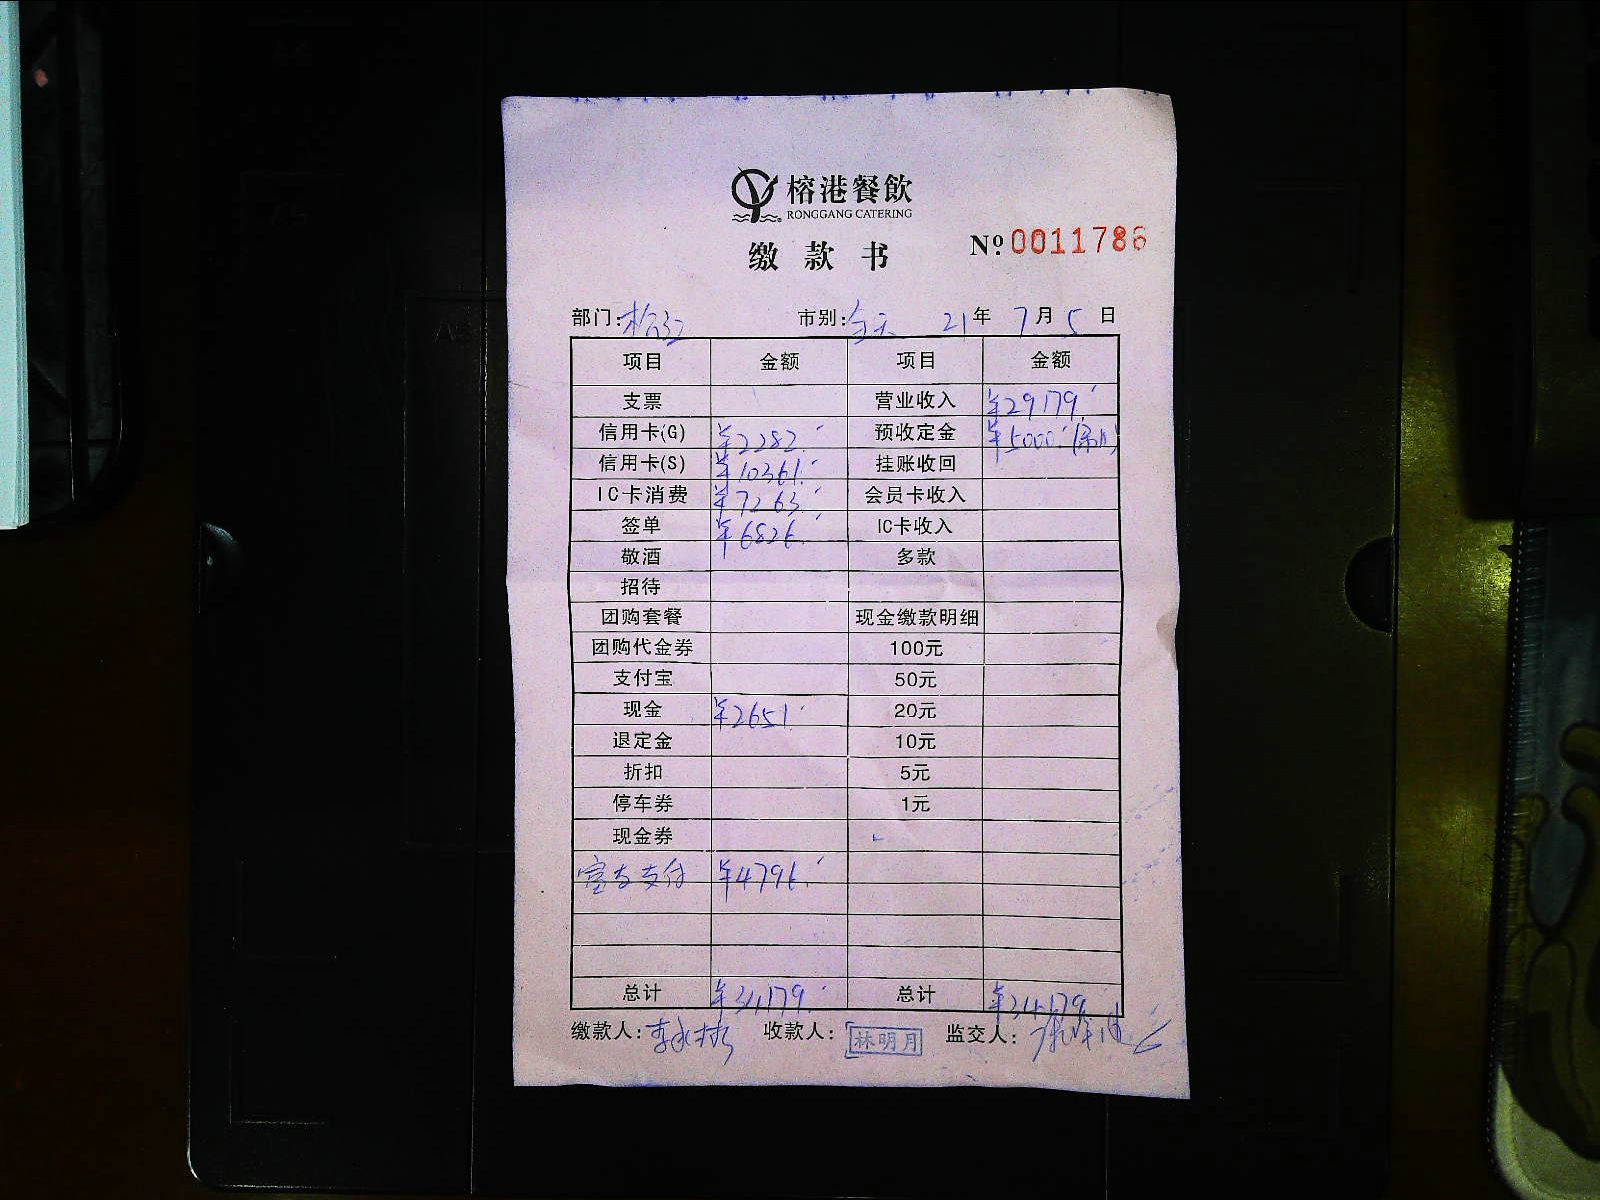 榕港餐飲
RONGGANG CATERING
缴款书 Nº 0011786
部门: 市别:全天 21年 7月 5日
项目 金额 项目 金额
支票 营业收入 ¥29179.
信用卡(G) ¥2282. 预收定金 ¥5000.
信用卡(S) ¥10361. 挂账收回
IC卡消费 ¥7263. 会员卡收入
签单 ¥6826. IC卡收入
敬酒 多款
招待
团购套餐 现金缴款明细
团购代金券 100元
支付宝 50元
现金 ¥2651. 20元
退定金 10元
折扣 5元
停车券 1元
现金券
支付 ¥4796.
总计 ¥34179. 总计 ¥34179
缴款人: 收款人: 林明月 监交人: